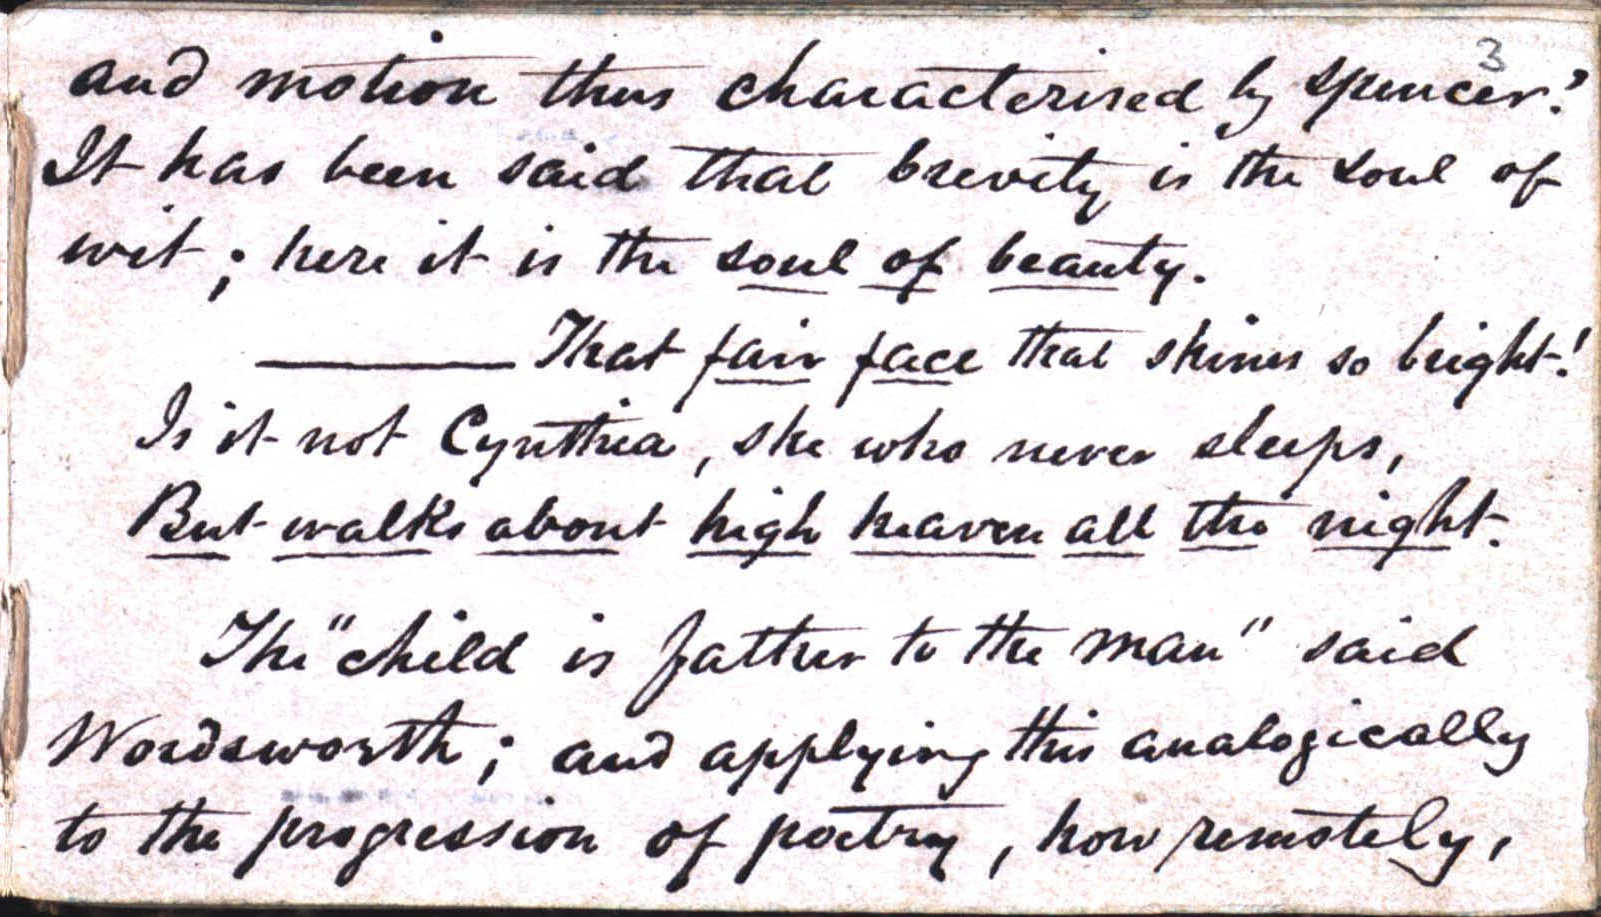 3
and motion thus characterised by Spencer?
It has been said that brevity is the soul of
wit; here it is the soul of beauty.
———— That fair face that shines so bright!
Is it not Cynthia, she who never sleeps,
But walks about high heaven all the night.
The "child is father to the man" said
Wordsworth; and applying this analogically
to the progression of poetry, how remotely,